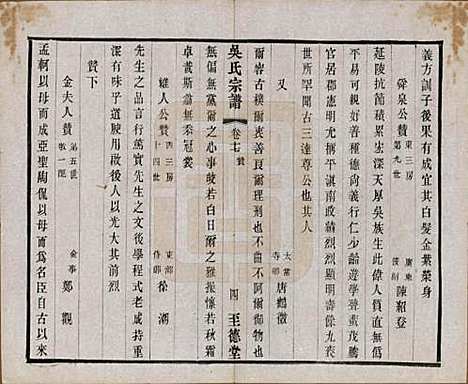 義方訓子後果有成宜其白髮金紫榮身
舜泉公贊 東三房 第九世 廣東 按副 陳紹登
延陵抗節積累忠深天厚吳族生此偉人質烈
平易可親好善種德亢宗少齡遊學聲蜚茂勝
官居郡憲明允楠平滇南政績烈烈顯明倐九丧
世所罕聞古三達尊公也其人
又 太常 寺卿 唐鶴徵
爾容古樸爾衷善良爾理刑也不阿爾御物也
無偏無黨爾之心事皎若白日爾之雅操凜若秋霜
卓哉斯翁無忝冠裳
吳氏宗譜
卷十七 贊
四
至德堂
維人公贊 西三房 十四世 東部 侍郎 徐潮
先生之品言行篤實先生之文後學程式老成持重
深有味乎道腴用啟後人以光大其門閭
贊下
金夫人贊 第五世 敏一配 僉事 鄭觀
孟軻以母而成亞聖陶侃以母而為名臣自古以來